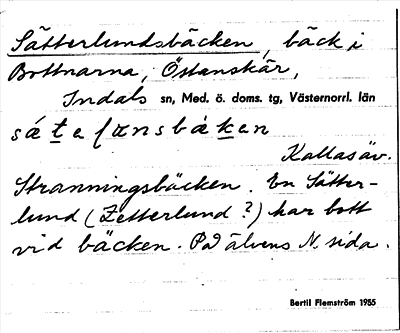 Sätterlundsbäcken, bäck i
Bottnarna, Östanskär,
Indals sn, Med. ö. doms. tg, Västernorrl. län
Kallas äv.
Stranningsbäcken. En Sätter-
lund (Zetterlund?) har bott
vid bäcken. På älvens N. sida.
Bertil Flemström 1955